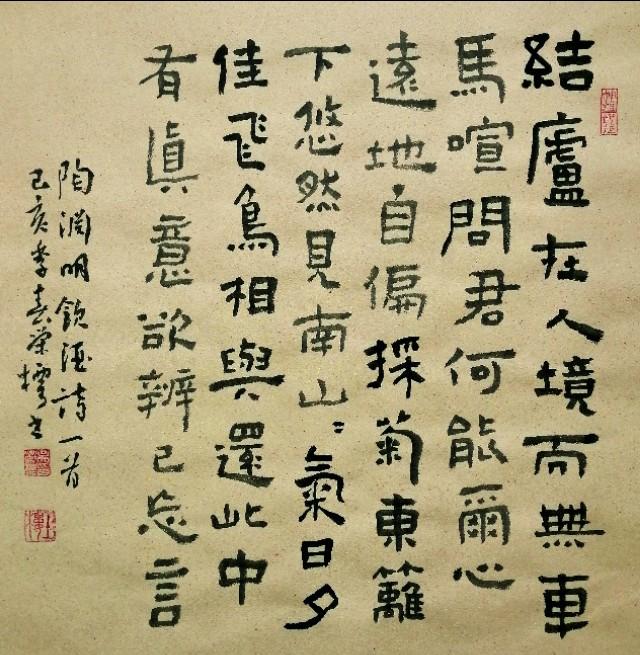 結廬在人境而無車
馬喧問君何能爾心
遠地自偏採菊東籬
下悠然見南山〻氣日夕
佳飛鳥相與還此中
有眞意欲辨已忘言
陶淵明飲酒詩一首
己亥季春榮書